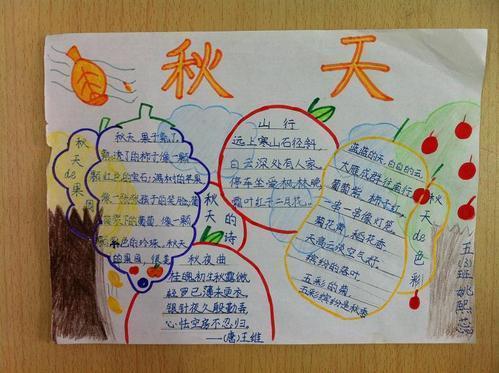 秋天
秋天de果园
秋天,果子熟了,
熟透了的柿子像一颗
颗红色的宝石;满树的苹果
像一张张孩子的笑脸;葡
萄架下的葡萄,像一颗
颗紫色的珍珠。秋天
的果园,很美
秋天的诗
山行
远上寒山石径斜,
白云深处有人家。
停车坐爱枫林晚,
霜叶红于二月花。
秋夜曲
桂魄初生秋露微,
轻罗已薄未更衣。
银针夜久殷勤弄,
心怯空房不忍归。
——(唐)王维
秋天de色彩
蓝蓝的天,白白的云,
大雁成群往南行
葡萄紫,柿子红,
一串一串像灯笼
菊花黄,稻花香
天高云淡空气好。
缤纷的落叶
五彩的菊
五彩缤纷是秋季
五(3)班